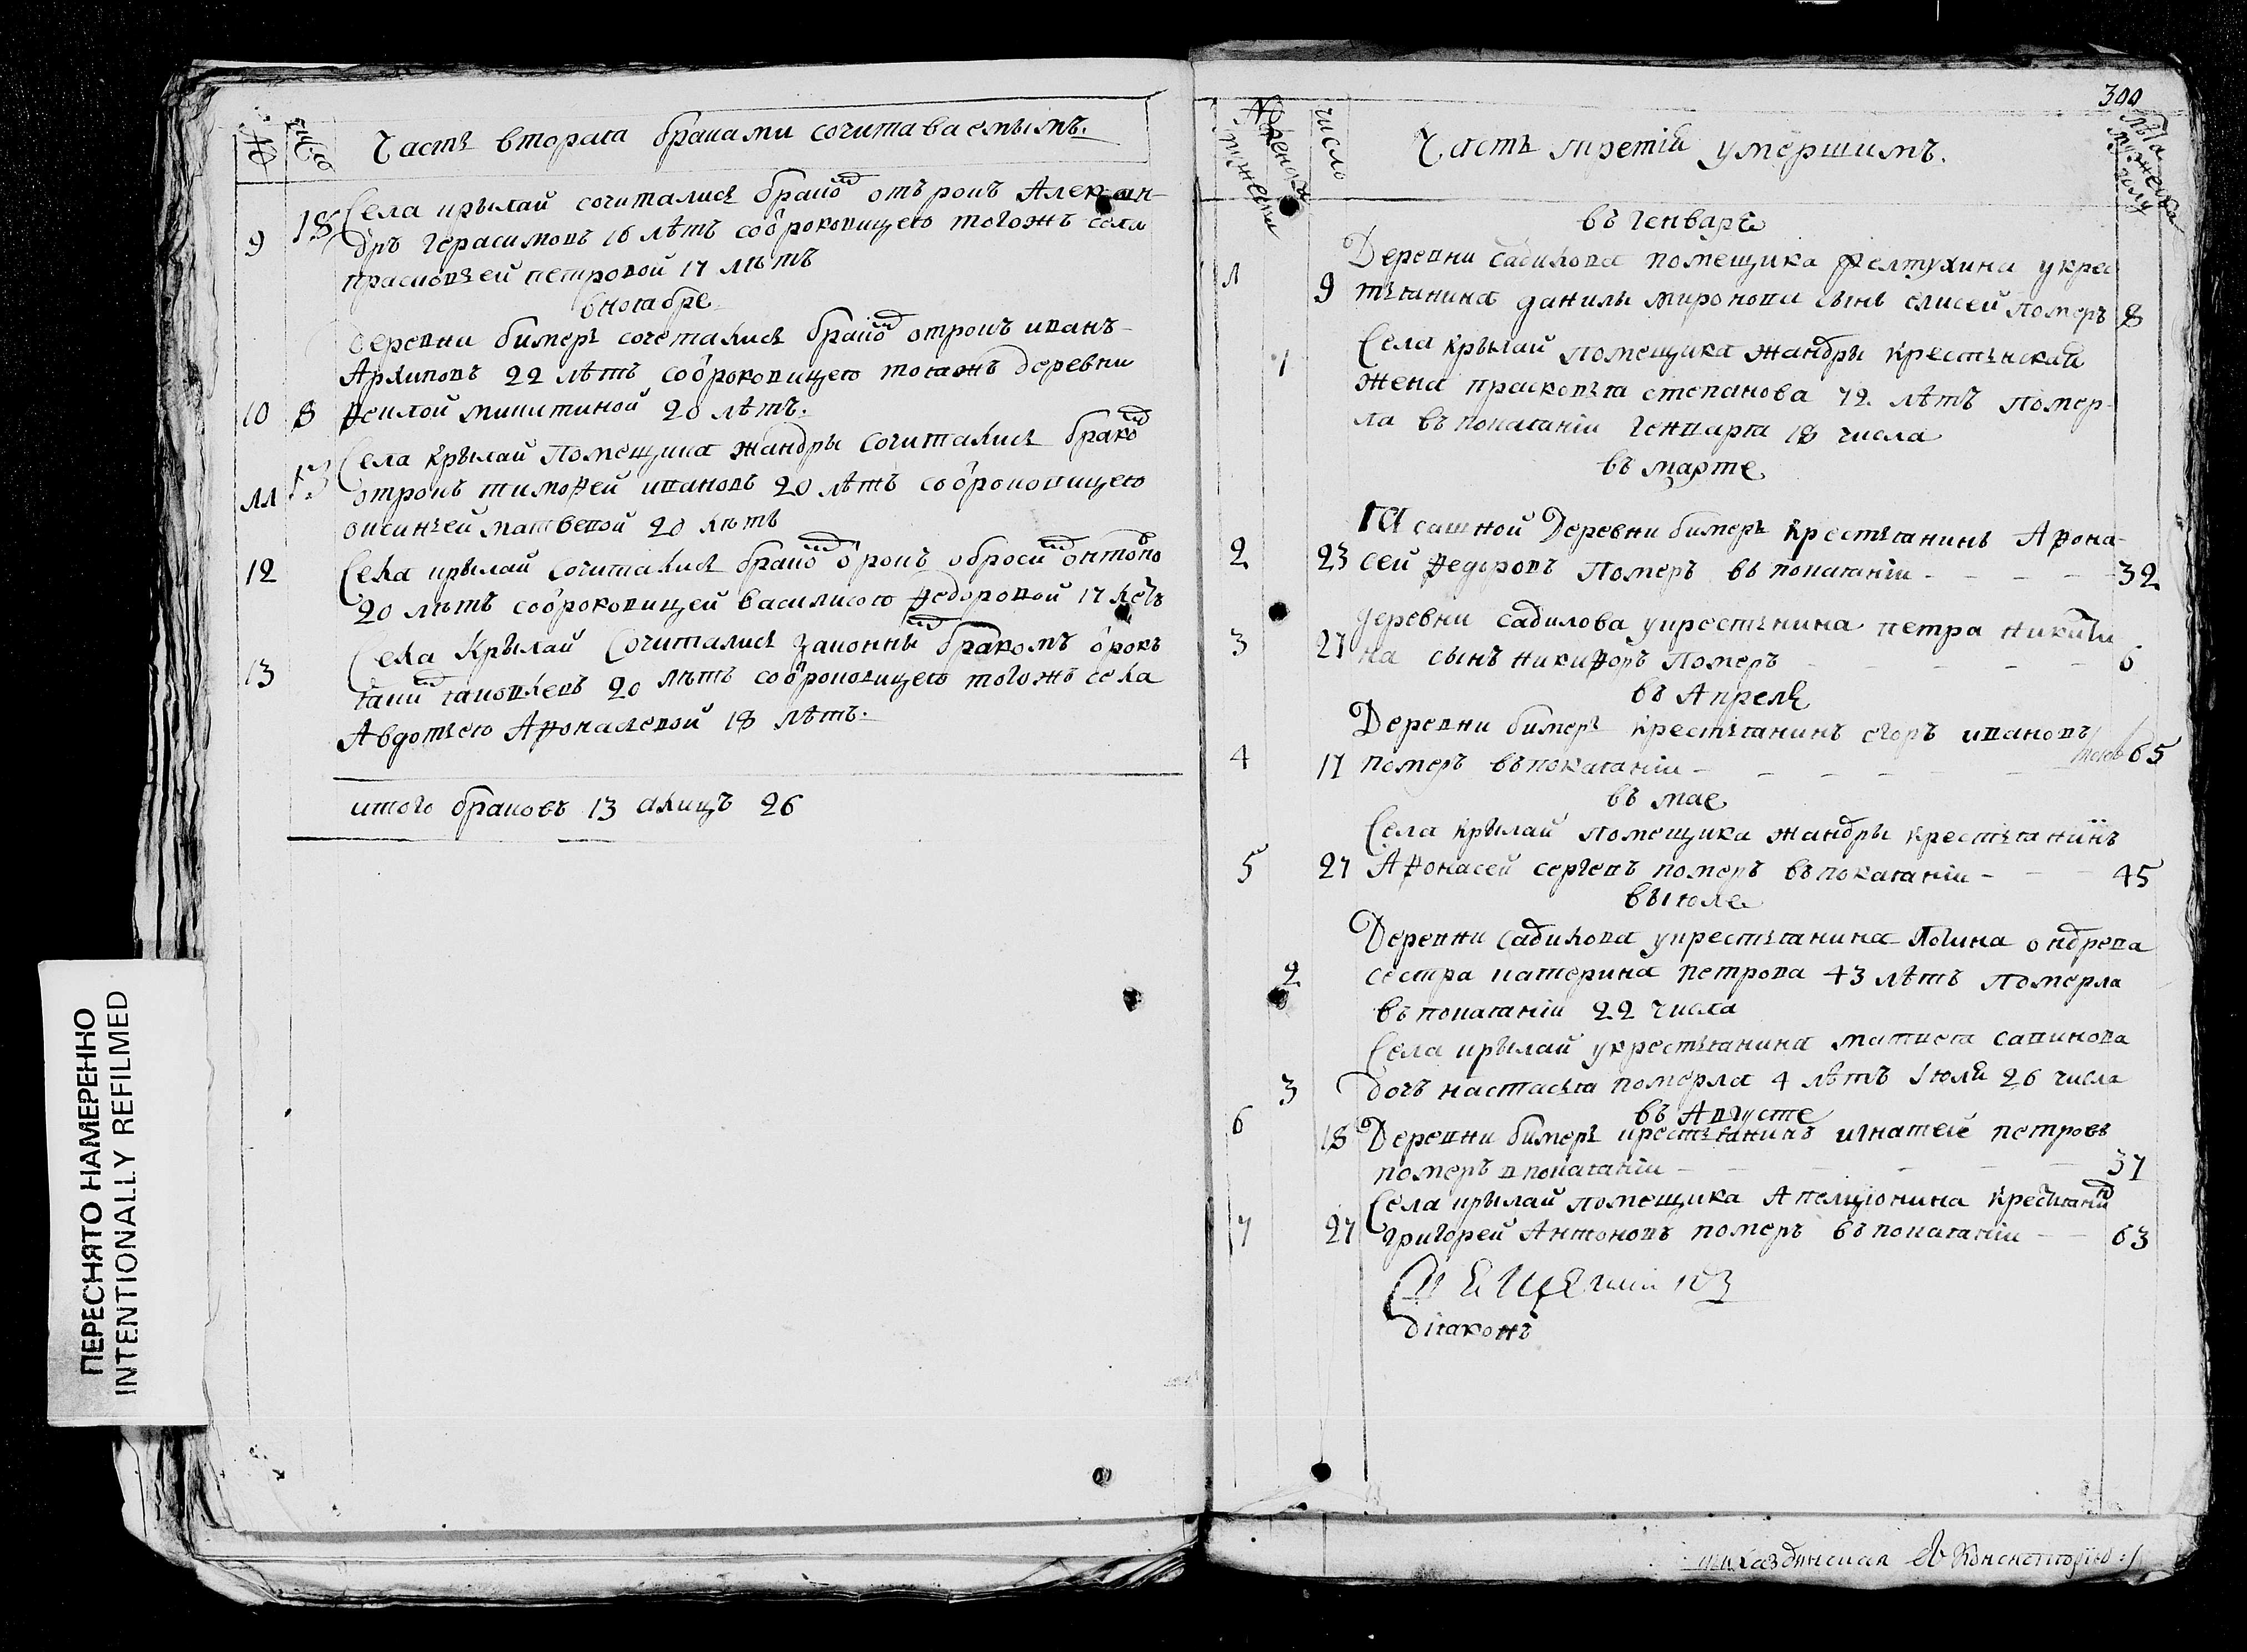 № число Часть вторая браками сочитаваемымъ.
9 18 Села крылай сочиталисѣ брако отърокъ Алексан-
дръ Герасимовъ 16 лѣтъ соброковицею тогожъ села
прасковѣей петровой 17 лѣтъ
вноябре
деревни бимерь сочеталисѣ брако отрокъ иванъ
Архиповъ 22 лѣтъ соброковицею тояжъ деревни
10 8 микитиной 20 лѣтъ.
Села крылай помещика жандры сочиталисѣ брако
11 13 отрокъ тимофей ивановъ 20 лѣтъ соброковицею
оксинѣей матвевой 20 лѣтъ
12 Села крылай сочиталисѣ брако оброси онтоно
20 лѣтъ соброковицей василисою федоровой 17 лѣтъ
13 Села Крылай Сочиталисѣ законны бракомъ орокъ
яки яковлевъ 20 лѣтъ соброковицею тогожъ села
Авдотьею Афонасевой 18 лѣтъ.
итого браковъ 13 алицъ 26
300
число Часть третія умершимъ. лѣта
въ генваре
Деревни Садилова помещика желтухина укрес
1 9 тьянина данилы миронова сынъ елисей померъ 8
Села крылай помещика жандры крестьнская
1 жена прасковья степанова 72 лѣтъ помер-
ла въ покаянiи генваря 18 числа
въ марте
Ясашной Деревни бимерь крестьянинъ Афона-
2 23 сей федоровъ померъ въ покаянiи 32
деревни садилова укрестьнина петра никити
3 27 на сынъ никифоръ померъ 6
въ Апреле
Деревни бимерь крестьянинъ егоръ ивановъ
4 17 померъ въпокаянiи 65
въ мае
Села крылай помещика жандры крестьянинъ
5 27 Афонасей сергевъ померъ въпокаянiи 45
въ июле
Деревни Садилова укрестьянина ондрева
2 сестра катерина петрова 43 лѣтъ померла
въ покаянiи 22 числа
Села крылай укрестьянина савинова
3 дочь настасья померла 4 лѣтъ Iюля 26 числа
въ Августе
6 18 Деревни бимерь крестьянинъ игнатей петровъ
померъ в покаянiи 37
Села крылай помещика крестьяни
7 27 григорей Антоновъ померъ въ покаянiи 63
дiаконъ
Консисторїю
ПЕРЕСНЯТО НАМЕРЕННО
INTENTIONALLY REFILMED